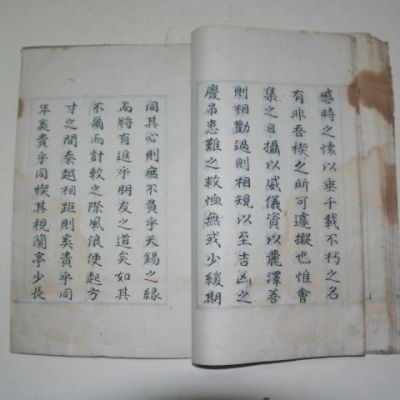 感時之懷以垂千載不朽之名
有非吾稧之所可遽擬也惟會
集之日攝以威儀資以麗澤善
則相勸過則相規以至吉凶之
慶弔患難之救恤無或少緩期
同其心則庶不負乎天錫之緣
而將有進乎朋友之道矣如其
不爾而計較之際風浪便起方
寸之間秦越相距則奚貴乎同
年奚貴乎同稧其視蘭亭少長